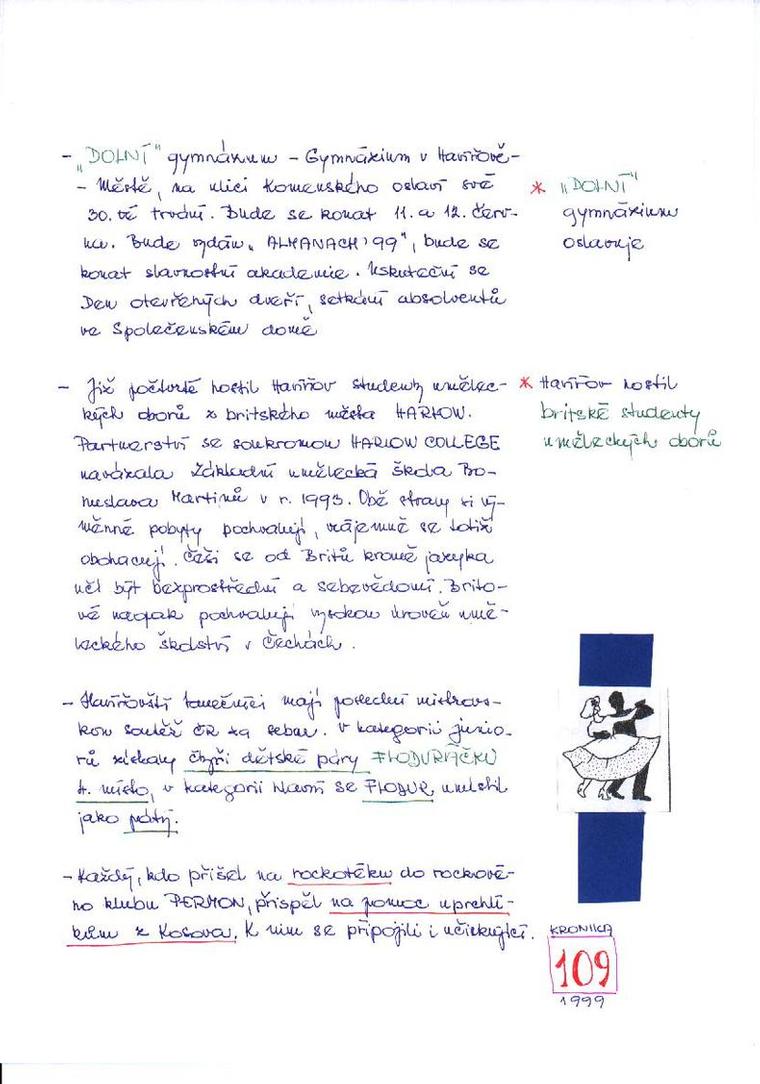 - "DOLNÍ" gymnázium - Gymnázium v Havířově-
- Městě, na ulici Komenského oslaví své
30. té trvání. Bude se konat 11. a 12. červ-
na. Bude vydán "ALMANACH '99", bude se
konat slavnostní akademie. Uskuteční se
Den otevřených dveří, setkání absolventů
ve Společenském domě
* "DOLNÍ"
gymnázium
oslavuje
- Již počtvrté hostil Havířov studenty umělec-
kých oborů z britského města HARLOW.
Partnerství se soukromou HARLOW COLLEGE
navázala Základní umělecká škola Bo-
huslava Martinů v r. 1993. Obě strany si vý-
měnné pobyty pochvalují, vzájemně se totiž
obohacují. Češi se od Britů kromě jazyka
učí být bezprostřední a sebevědomí. Brito-
vé naopak pochvalují vysokou úroveň umě-
leckého školství v Čechách.
* Havířov hostil
britské studenty
uměleckých oborů
- Havířovští tanečníci mají poslední mistrovs-
kou soutěž ČR za sebou. V kategorii junio-
rů získaly čtyři dětské páry FLODURÁČKU
4. místo, v kategorii hlavní se FLODUR umístil
jako pátý.
- Každý, kdo přišel na rockotéku do rockové-
ho klubu PERMON, přispěl na pomoc uprchlí-
kům z Kosova. K nim se připojili i účinkující.
KRONIKA
109
1999